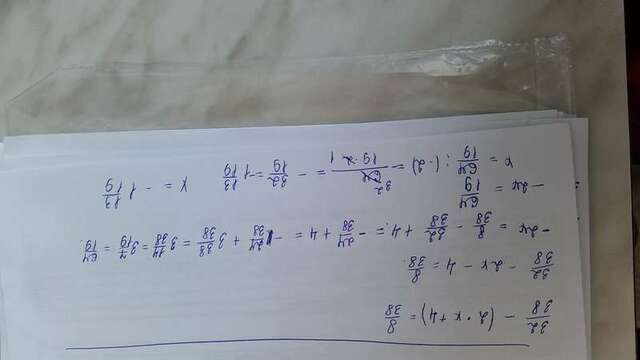 32/38 - (2·x+4) = 8/38
32/38 - 2x - 4 = 8/38
-2x = 8/38 - 32/38 + 4 = -24/38 + 4 = -24/38 + 3 38/38 = 3 14/38 = 3 7/19 = 64/19
-2x = 64/19
x = 64/19 : (-2) = 64 32/19·2 1 = -32/19 = -1 13/19
x = -1 13/19